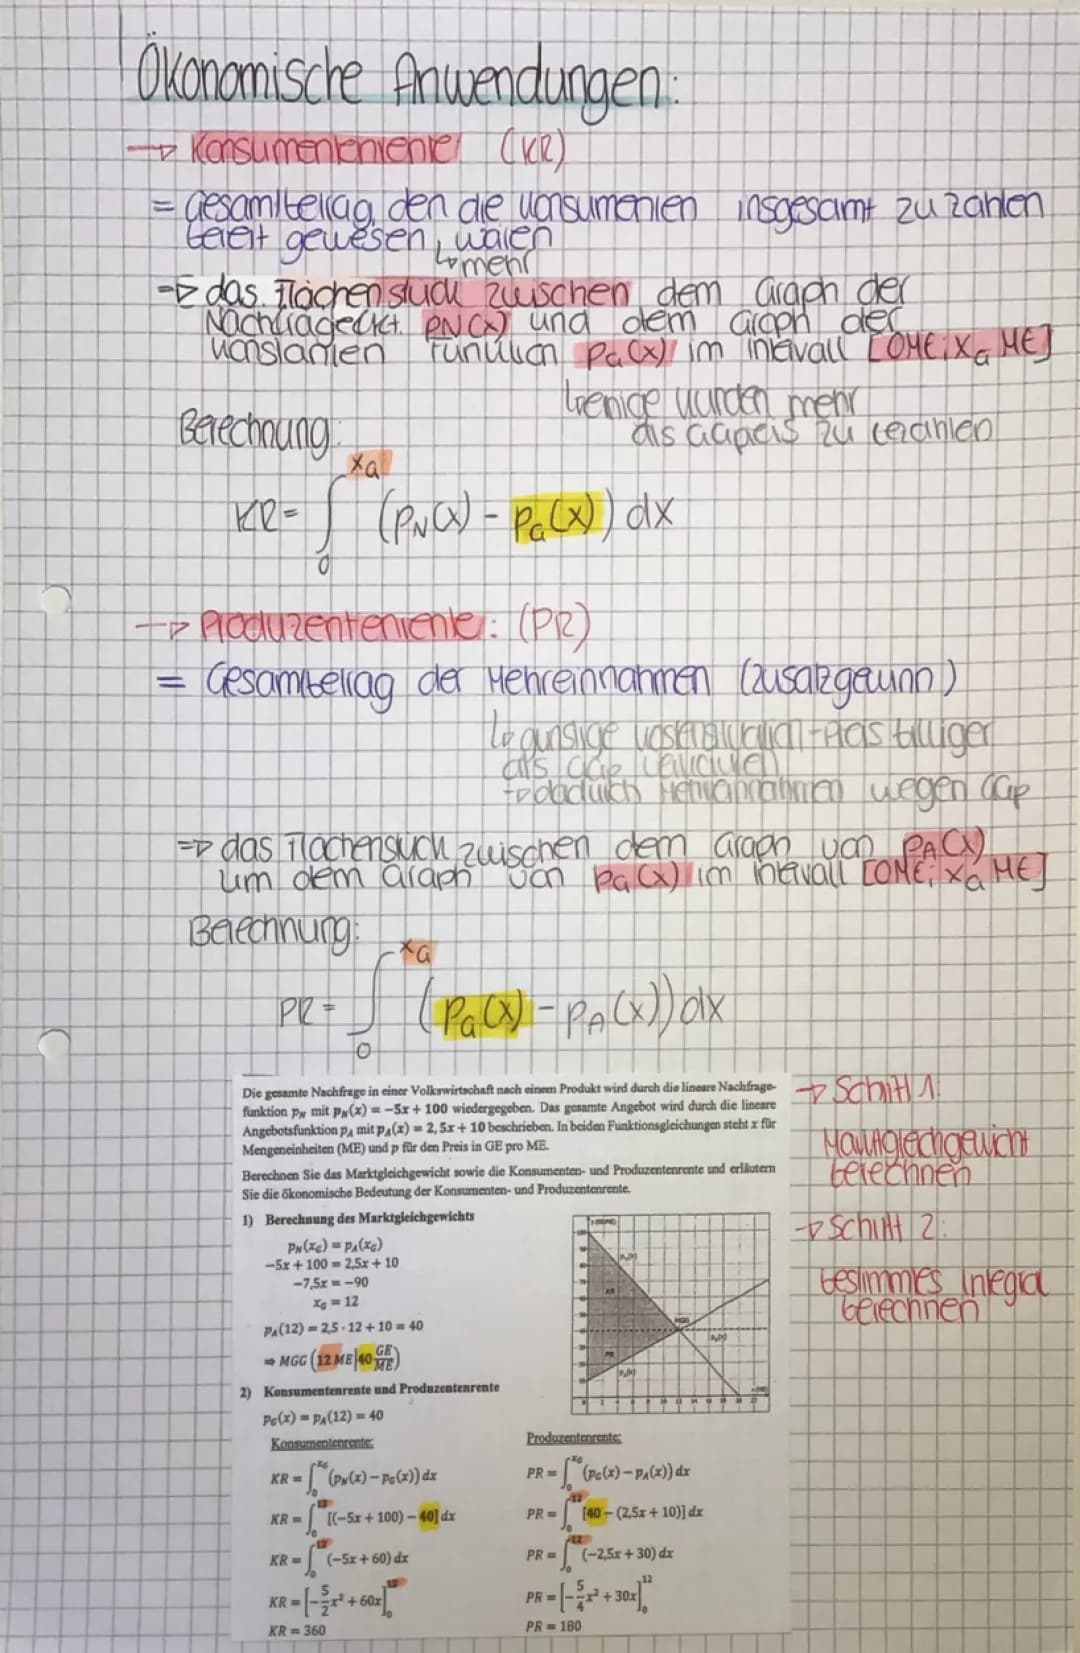 Ökonomische Anwendungen:
→ Konsumentenrente (KR)
= Gesamtbetrag, den die Konsumenten insgesamt zu zahlen
bereit gewesen wären
↳ mehr
=> das Flächenstück zwischen dem Graph der
Nachfragefkt. pN(x) und dem Graph der
konstanten Funktion pG(x) im Intervall [0ME; xG ME]
wurden mehr
zu bezahlen
Berechnung:
KR = ∫₀^xG (pN(x) - pG(x)) dx
→ Produzentenrente: (PR)
= Gesamtbetrag der Mehreinnahmen (Zusatzgewinn)
↳ günstige billiger
als
→ dadurch Mehreinnahmen wegen GGP
=> das Flächenstück zwischen dem Graph von pA(x)
um dem Graph von pG(x) im Intervall [0ME; xG ME]
Berechnung:
PR = ∫₀^xG (pG(x) - pA(x)) dx
Die gesamte Nachfrage in einer Volkswirtschaft nach einem Produkt wird durch die lineare Nachfrage-
funktion pN mit pN(x) = −5x + 100 wiedergegeben. Das gesamte Angebot wird durch die lineare
Angebotsfunktion pA mit pA(x) = 2,5x + 10 beschrieben. In beiden Funktionsgleichungen steht x für
Mengeneinheiten (ME) und p für den Preis in GE pro ME.
Berechnen Sie das Marktgleichgewicht sowie die Konsumenten- und Produzentenrente und erläutern
Sie die ökonomische Bedeutung der Konsumenten- und Produzentenrente.
→ Schritt 1:
Marktgleichgewicht
berechnen
→ Schritt 2:
bestimmtes Integral
berechnen
1) Berechnung des Marktgleichgewichts
pN(xG) = pA(xG)
−5x + 100 = 2,5x + 10
−7,5x = −90
xG = 12
pA(12) = 2,5 · 12 + 10 = 40
⇒ MGG (12 ME|40 GE/ME)
KR
PR
MGG
2) Konsumentenrente und Produzentenrente
pG(x) = pA(12) = 40
Konsumentenrente:
KR = ∫₀^xG (pN(x) − pG(x)) dx
KR = ∫₀^12 [(−5x + 100) − 40] dx
KR = ∫₀^12 (−5x + 60) dx
KR = [−5/2 x² + 60x]₀^12
KR = 360
Produzentenrente:
PR = ∫₀^xG (pG(x) − pA(x)) dx
PR = ∫₀^12 [40 − (2,5x + 10)] dx
PR = ∫₀^12 (−2,5x + 30) dx
PR = [−5/4 x² + 30x]₀^12
PR = 180